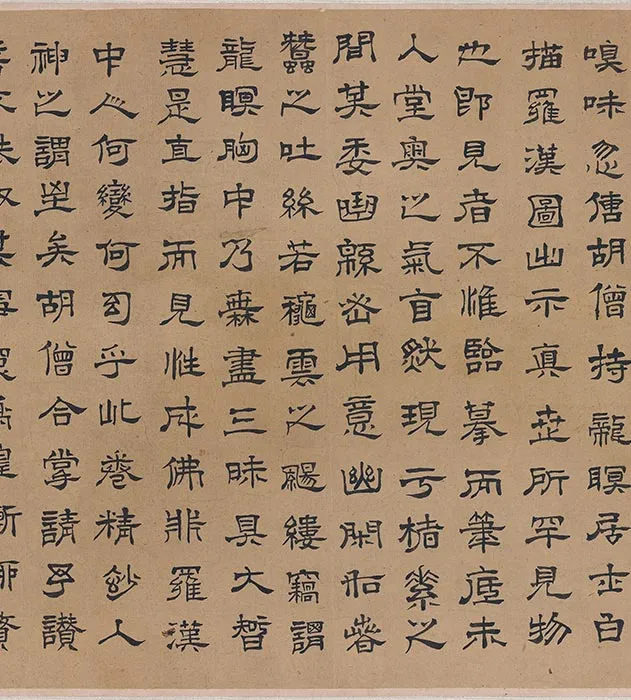 嗅味忽傳胡僧持龍瞑居士白
描羅漢圖出示真世所罕見物
也即見者不惟臨摹而筆底未
人堂奧之氣盲然現于楮素之
間其委綿密用意幽閑
蠶之吐絲若穐雲之颺縷竊謂
龍瞑胸中乃盡三昧具大智
慧是直指而見性成佛非羅漢
中人何變何幻乎此卷精紗人
神之謂至矣胡僧合掌請予讚